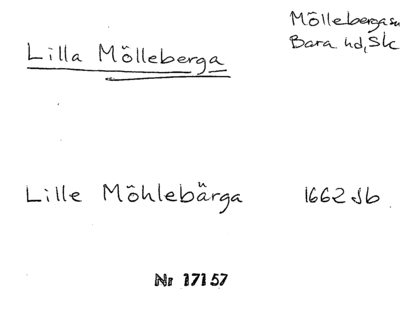 Mölleberga sn
Bara hd, Sk
Lilla Mölleberga
Lille Möhlebärga 1662 Jb
Nr 17157